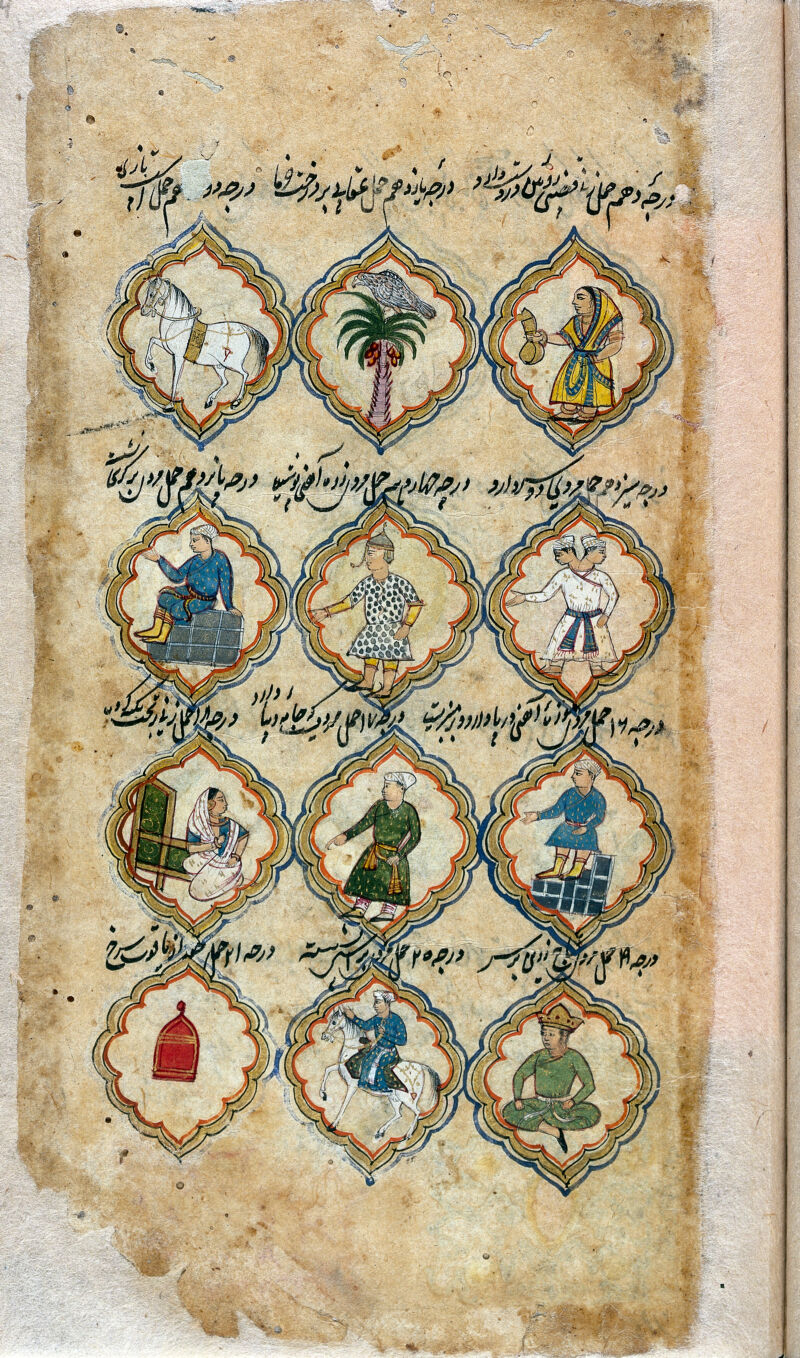 درجهٔ دهم حمل زنی در دست دارد درجهٔ یازدهم حمل عقابی بر درخت خرما درجه دو هم حمل تازی
درجه سیزدهم حمل مردی که دو سر دارد درجه چهاردهم حمل مردی زره آهنی پوشیده درجه پانزدهم حمل مردی بر کرسی نشسته
درجه ۱۶ حمل مردی آهنی در پا دارد درجه ۱۷ حمل مردی که جامه دیبا دارد درجه ۱۸ حمل زنی بر تخت تکیه کرده
درجه ۱۹ حمل مردی تاج زرین بر سر درجه ۲۰ حمل مردی بر اسپ نشسته درجه ۲۱ حمل از یاقوت سرخ